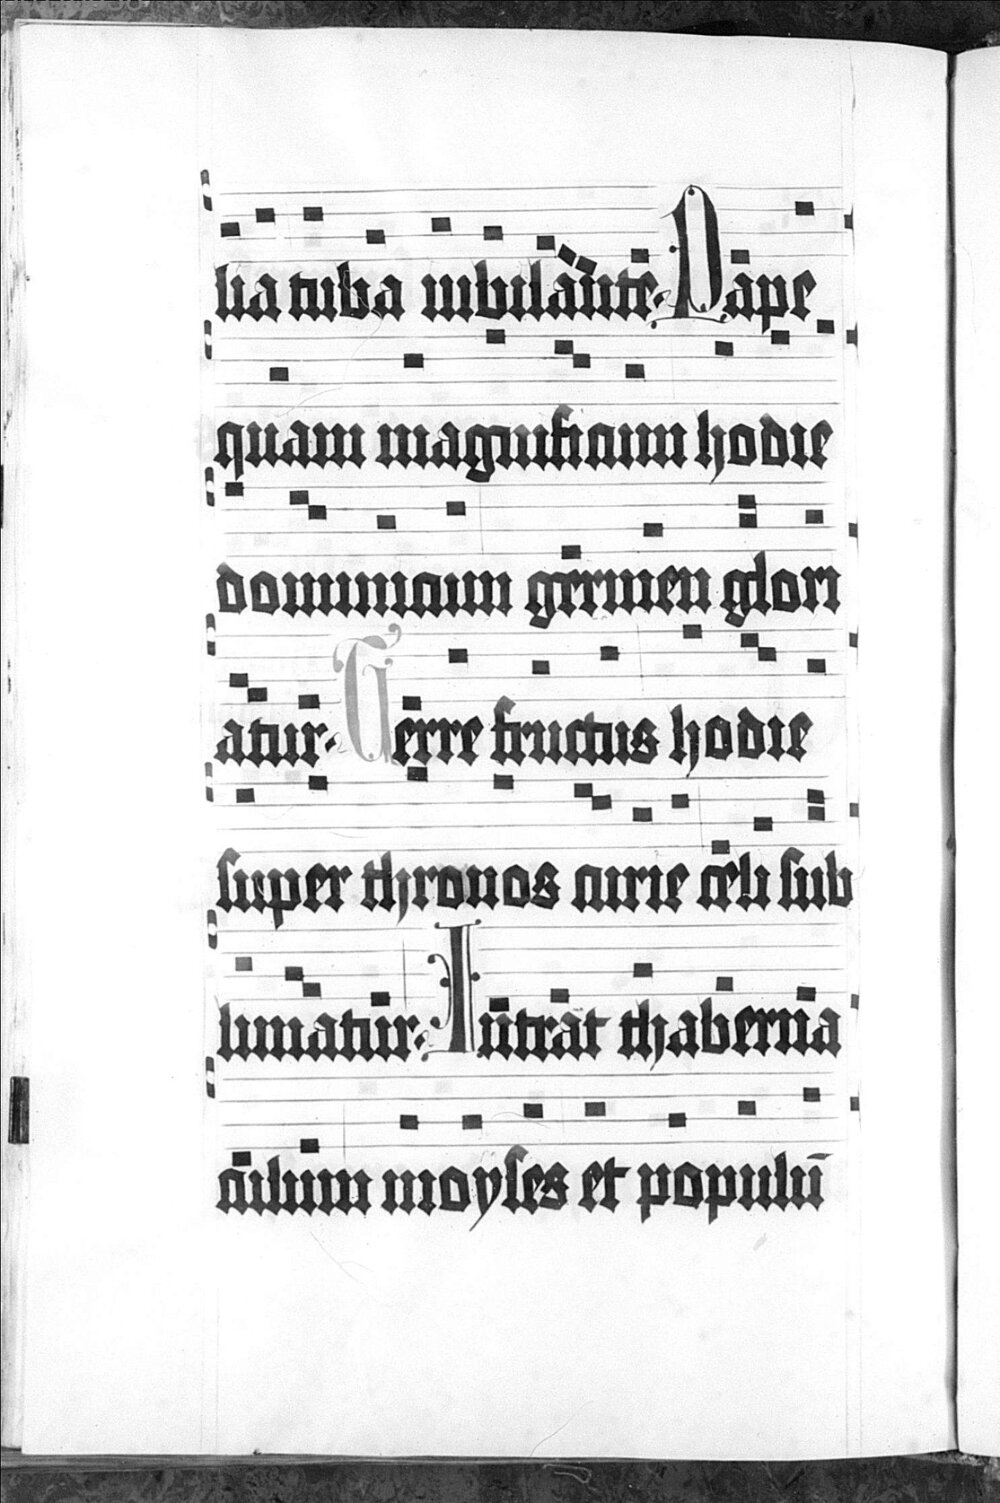 lia tuba iubilante. Pape
quam magnificum hodie
dominicum germen glori
atur. Terre fructus hodie
super thronos curie celi sub
limatur. Intrat thaberna
culum moyses et populū